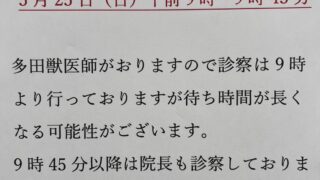 5月25日（日）午前9時～9時45分
多田獣医師がおりますので診察は９時
より行っておりますが待ち時間が長く
なる可能性がございます。
９時 45 分以降は院長も診察しておりま